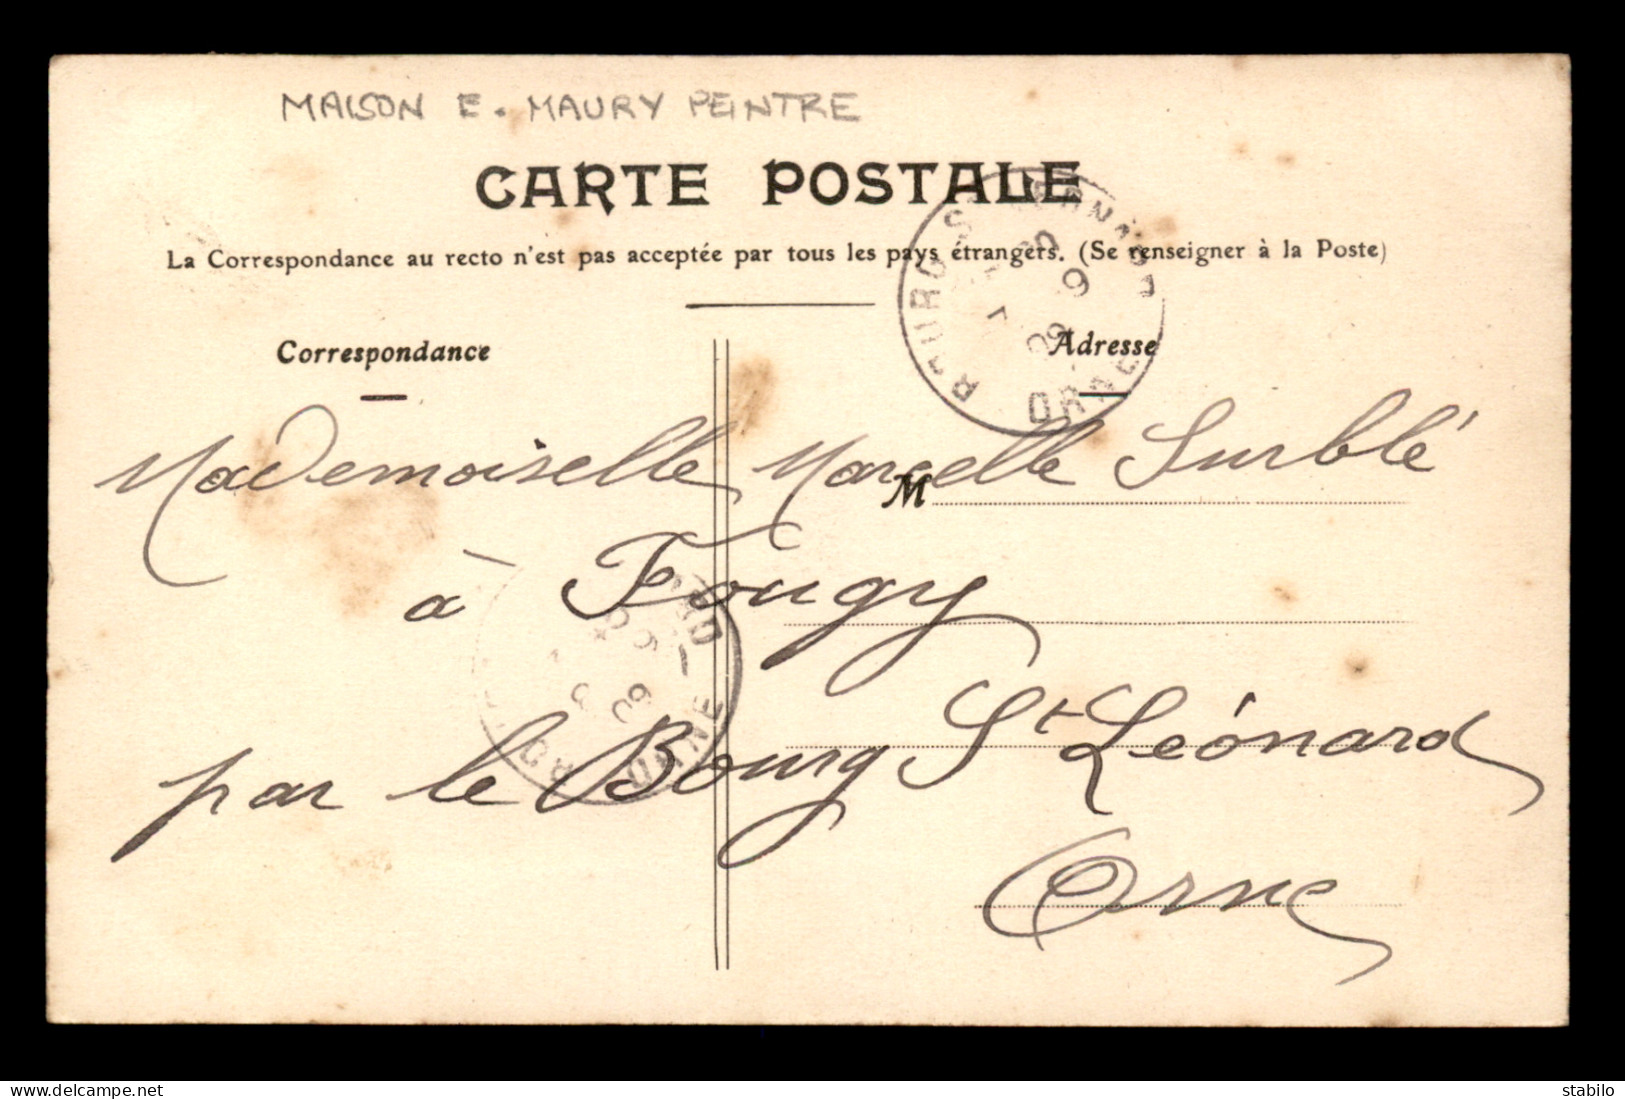 MAISON E. MAURY PEINTRE
CARTE POSTALE
La Correspondance au recto n'est pas acceptée par tous les pays étrangers. (Se renseigner à la Poste)
Correspondance
Adresse
Mademoiselle Marcelle Surblé
M
à Fougy
par le Bourg St Léonard
Orne
BOURG ST LEONARD
ORNE
delcampe.net
stabilo